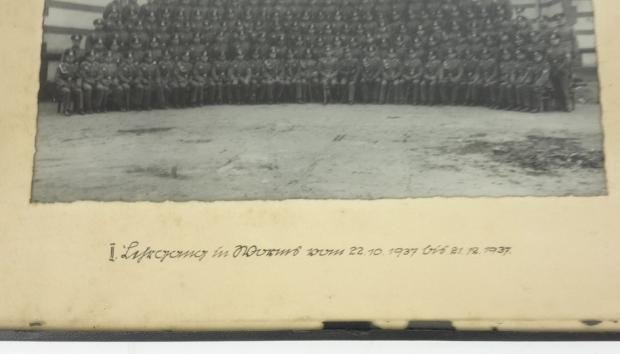 II. Lehrgang in Worms vom 22.10.1937 bis 21.12.1937.